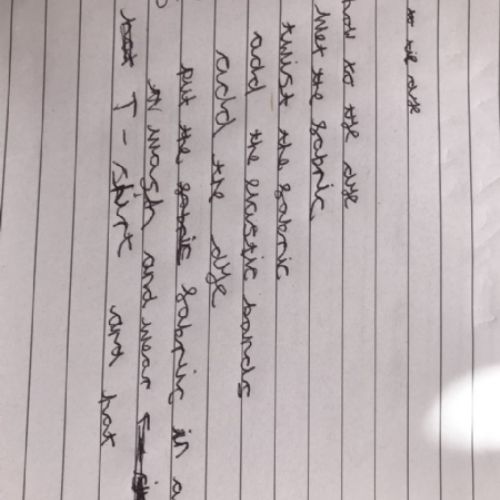 to tie dye
how to tye dye
Wet the fabric
twist the fabric
add the elastic bands
add the dye
put the fabric in a
wash and wear
T-shirt and hat